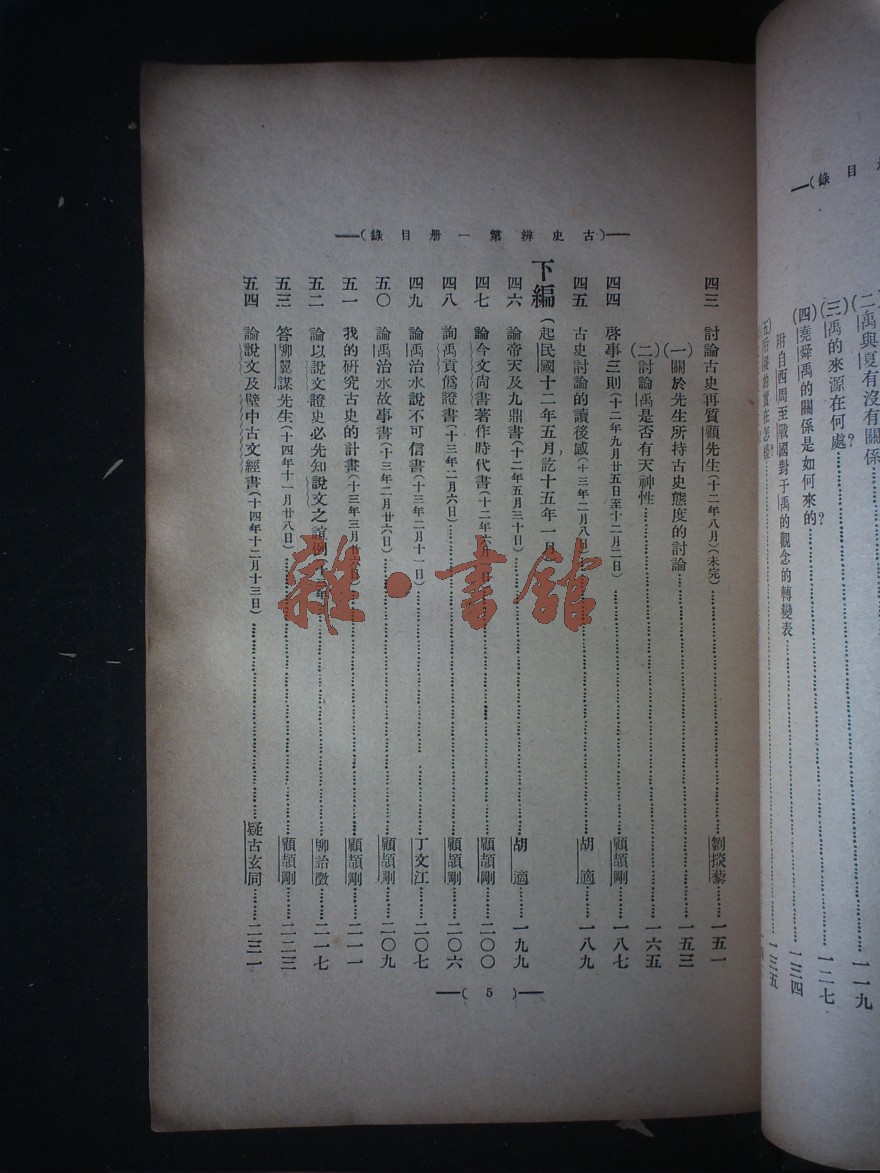 錄 目
(二)禹與夏有沒有關係……一一九
(三)禹的來源在何處?……一二七
(四)堯舜禹的關係是如何來的?……一三四
附自西周至戰國對于禹的觀念的轉變表……
(五)后稷的實在怎樣?……一三五
(古史辨第一册目錄)
四三 討論古史再質顧先生(十二年八月)(未完)……劉掞藜……一五一
(一)關於先生所持古史態度的討論……一五三
(二)討論禹是否有天神性……一六五
四四 啓事三則(十二年九月廿五日至十二月二日)……顧頡剛……一八七
四五 古史討論的讀後感(十三年二月八日)……胡適……一八九
下編(起民國十二年五月,訖十五年一月)
四六 論帝天及九鼎書(十二年五月三十日)……胡適……一九九
四七 論今文尚書著作時代書(十二年六月一日)……顧頡剛……二〇〇
四八 詢禹貢僞證書(十三年二月六日)……顧頡剛……二〇六
四九 論禹治水說不可信書(十三年二月十一日)……丁文江……二〇七
五〇 論禹治水故事書(十三年二月廿六日)……顧頡剛……二〇九
五一 我的研究古史的計畫(十三年三月廿 日)……顧頡剛……二一一
五二 論以說文證史必先知說文之誼例(十三年)……柳詒徵……二一七
五三 答柳翼謀先生(十四年十一月廿八日)……顧頡剛……二二三
五四 論說文及壁中古文經書(十四年十二月十三日)……疑古玄同……二三一
(5)
雜·書館